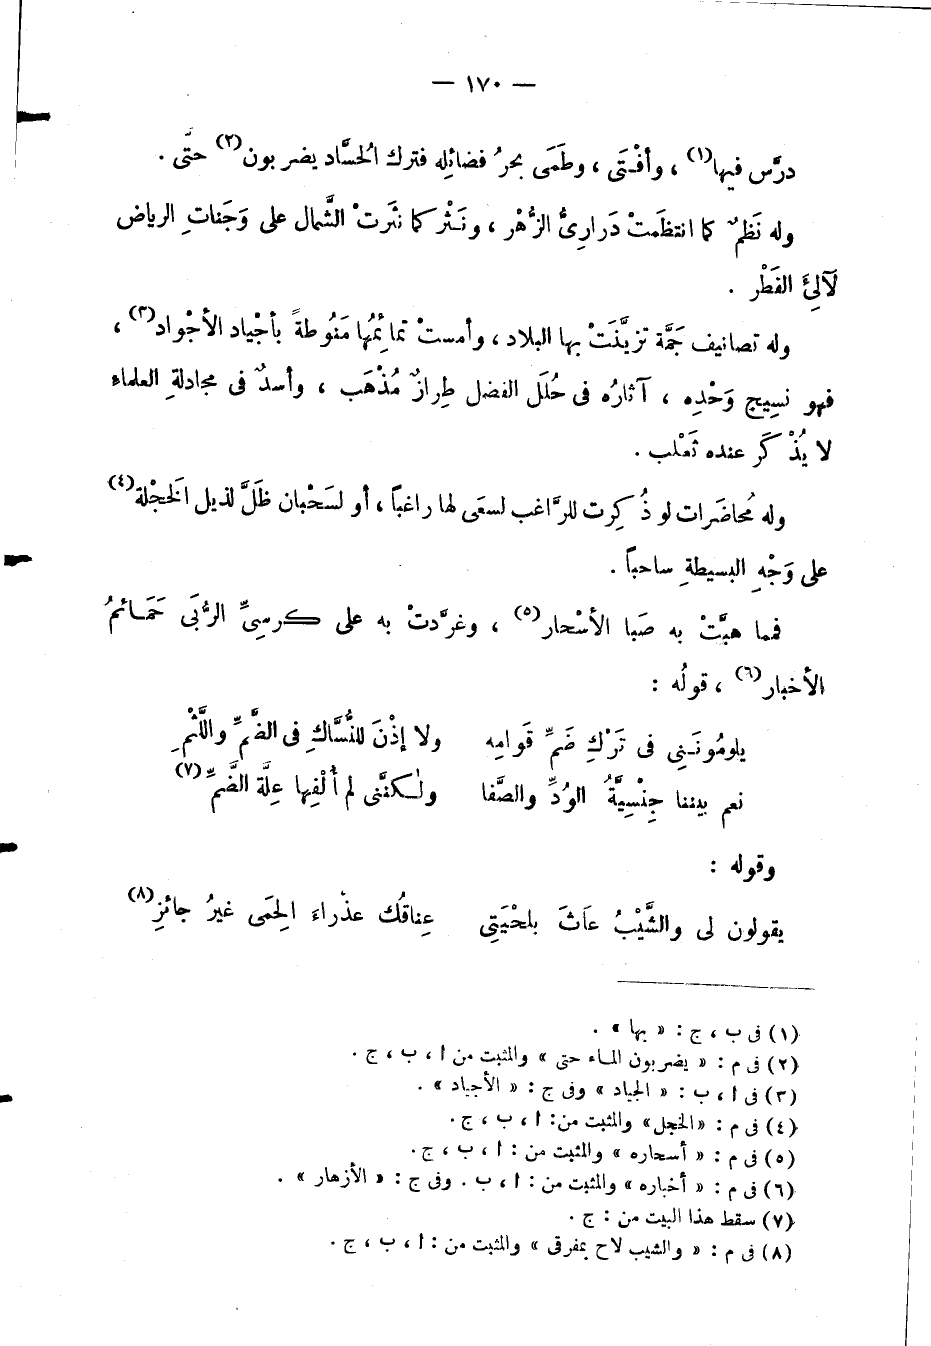 — ١٧٠ —
درَّس فيها(١) ، وأفْتَى ، وطَمَى بحرُ فضائلِه فترك الحُسَّاد يضربون(٢) حتَّى .
وله نَظمٌ كما انتظَمتْ دَرارِىُّ الزُّهْر ، ونَثْر كما نثَرتْ الشَّمال على وَجَناتِ الرياض
لَآلِئَ القَطْر .
وله تصانيف جَمَّة تزيَّنَتْ بها البلاد ، وأمستْ تمائمُها مَنُوطةً بأجْياد الأجْواد(٣) ،
فهو نسِيج وَحْدِه ، آثارُه فى حُلَل الفضل طِرازٌ مُذْهَب ، وأسدٌ فى مجادلةِ العلماء
لا يُذْكَر عنده ثَعْلب .
وله مُحاضَرات لو ذُكِرت للرَّاغب لسعَى لها راغباً ، أو لسَحْبان ظَلَّ لذيل الخَجْلة(٤)
على وَجْهِ البسيطةِ ساحباً .
فمما هبَّتْ به صَبا الأسْحار(٥) ، وغرَّدتْ به على كرسِىِّ الرُّبَى حَمَائمُ
الأخبار(٦) ، قولُه :
يلومُونَنِى فى تَرْكِ ضَمِّ قَوامِه ولا إذْنَ للنُّسَّاكِ فى الضَّمِّ واللَّثْمِ
نعم بيننا جِنْسِيَّةُ الوُدِّ والصَّفا ولكنَّنى لم أُلْفِها عِلَّةَ الضَّمِّ(٧)
وقوله :
يقولون لى والشَّيْبُ عَاثَ بلحْيَتِى عِناقُك عذْراءَ الحِمَى غيرُ جائزِ(٨)
(١) فى ب ، ج : « بها » .
(٢) فى م : « يضربون الماء حتى » والمثبت من ا ، ب ، ج .
(٣) فى ا ، ب : « الجياد » وفى ج : « الأجياد » .
(٤) فى م : «الخجل» والمثبت من : ا ، ب ، ج .
(٥) فى م : « أسحاره » والمثبت من : ا ، ب ، ج .
(٦) فى م : « أخباره » والمثبت من : ا ، ب . وفى ج : « الأزهار » .
(٧) سقط هذا البيت من : ج .
(٨) فى م : « والشيب لاح بمفرقى » والمثبت من : ا ، ب ، ج .